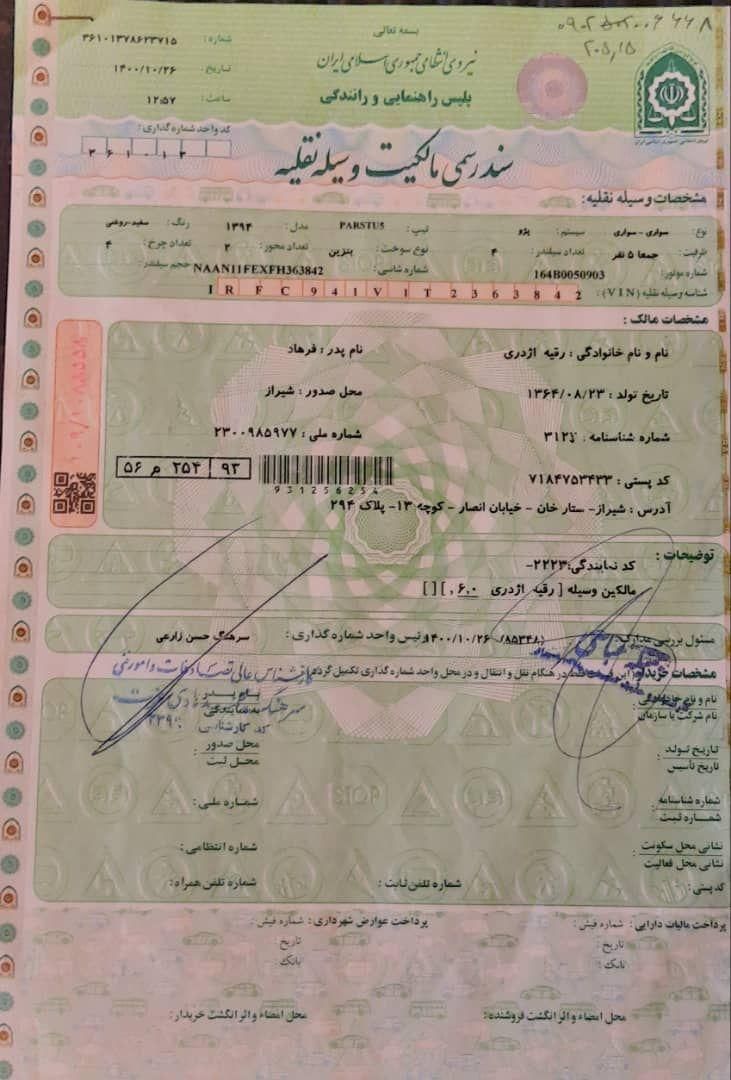 بسمه تعالی
نیروی انتظامی جمهوری اسلامی ایران
پلیس راهنمایی و رانندگی
شماره: ۳۶۱۰۱۳۷۸۶۲۳۷۱۵
تاریخ: ۱۴۰۰/۱۰/۲۶
ساعت: ۱۲:۵۷
کد واحد شماره گذاری:
۳۶۱۰۱۳
سند رسمی مالکیت وسیله نقلیه
مشخصات وسیله نقلیه:
نوع: سواری - سواری سیستم: پژو تیپ: PARSTU5 مدل: ۱۳۹۴ رنگ: سفید-روغنی
ظرفیت: جمعا ۵ نفر تعداد سیلندر: ۴ نوع سوخت: بنزین تعداد محور: ۲ تعداد چرخ: ۴
شماره موتور: 164B0050903 شماره شاسی: NAAN11FEXFH363842 حجم سیلندر:
شناسه وسیله نقلیه (VIN): IRFC941V1T2363842
مشخصات مالک:
نام و نام خانوادگی: رقیه اژدری نام پدر: فرهاد
تاریخ تولد: ۱۳۶۴/۰۸/۲۳ محل صدور: شیراز
شماره شناسنامه: شماره ملی: ۲۳۰۰۹۸۵۹۷۷
کد پستی: ۷۱۸۴۷۵۳۴۳۳
۹۳ ۲۵۴ م ۵۶
931256254
آدرس: شیراز- ستار خان - خیابان انصار - کوچه ۱۳- پلاک ۲۹۴
توضیحات: کد نمایندگی:۲۲۲۳-
مالکین وسیله [رقیه اژدری ۶.۰ ,][]
مسئول بررسی مدارک: ۱۴۰۰/۱۰/۲۶ رئیس واحد شماره گذاری: سرهنگ حسن زارعی
مشخصات خریدار: در هنگام نقل و انتقال و در محل واحد شماره گذاری تکمیل گردد
نام و نام خانوادگی نام پدر
نام شرکت یا سازمان به نمایندگی
تاریخ تولد محل صدور
تاریخ تاسیس محل ثبت
شماره شناسنامه شماره ملی:
شماره ثبت
نشانی محل سکونت شماره انتظامی:
نشانی محل فعالیت
کد پستی: شماره تلفن ثابت: شماره تلفن همراه:
پرداخت مالیات دارایی: شماره فیش: پرداخت عوارض شهرداری: شماره فیش:
تاریخ: تاریخ:
بانک: بانک:
محل امضاء و اثر انگشت فروشنده: محل امضاء و اثر انگشت خریدار: